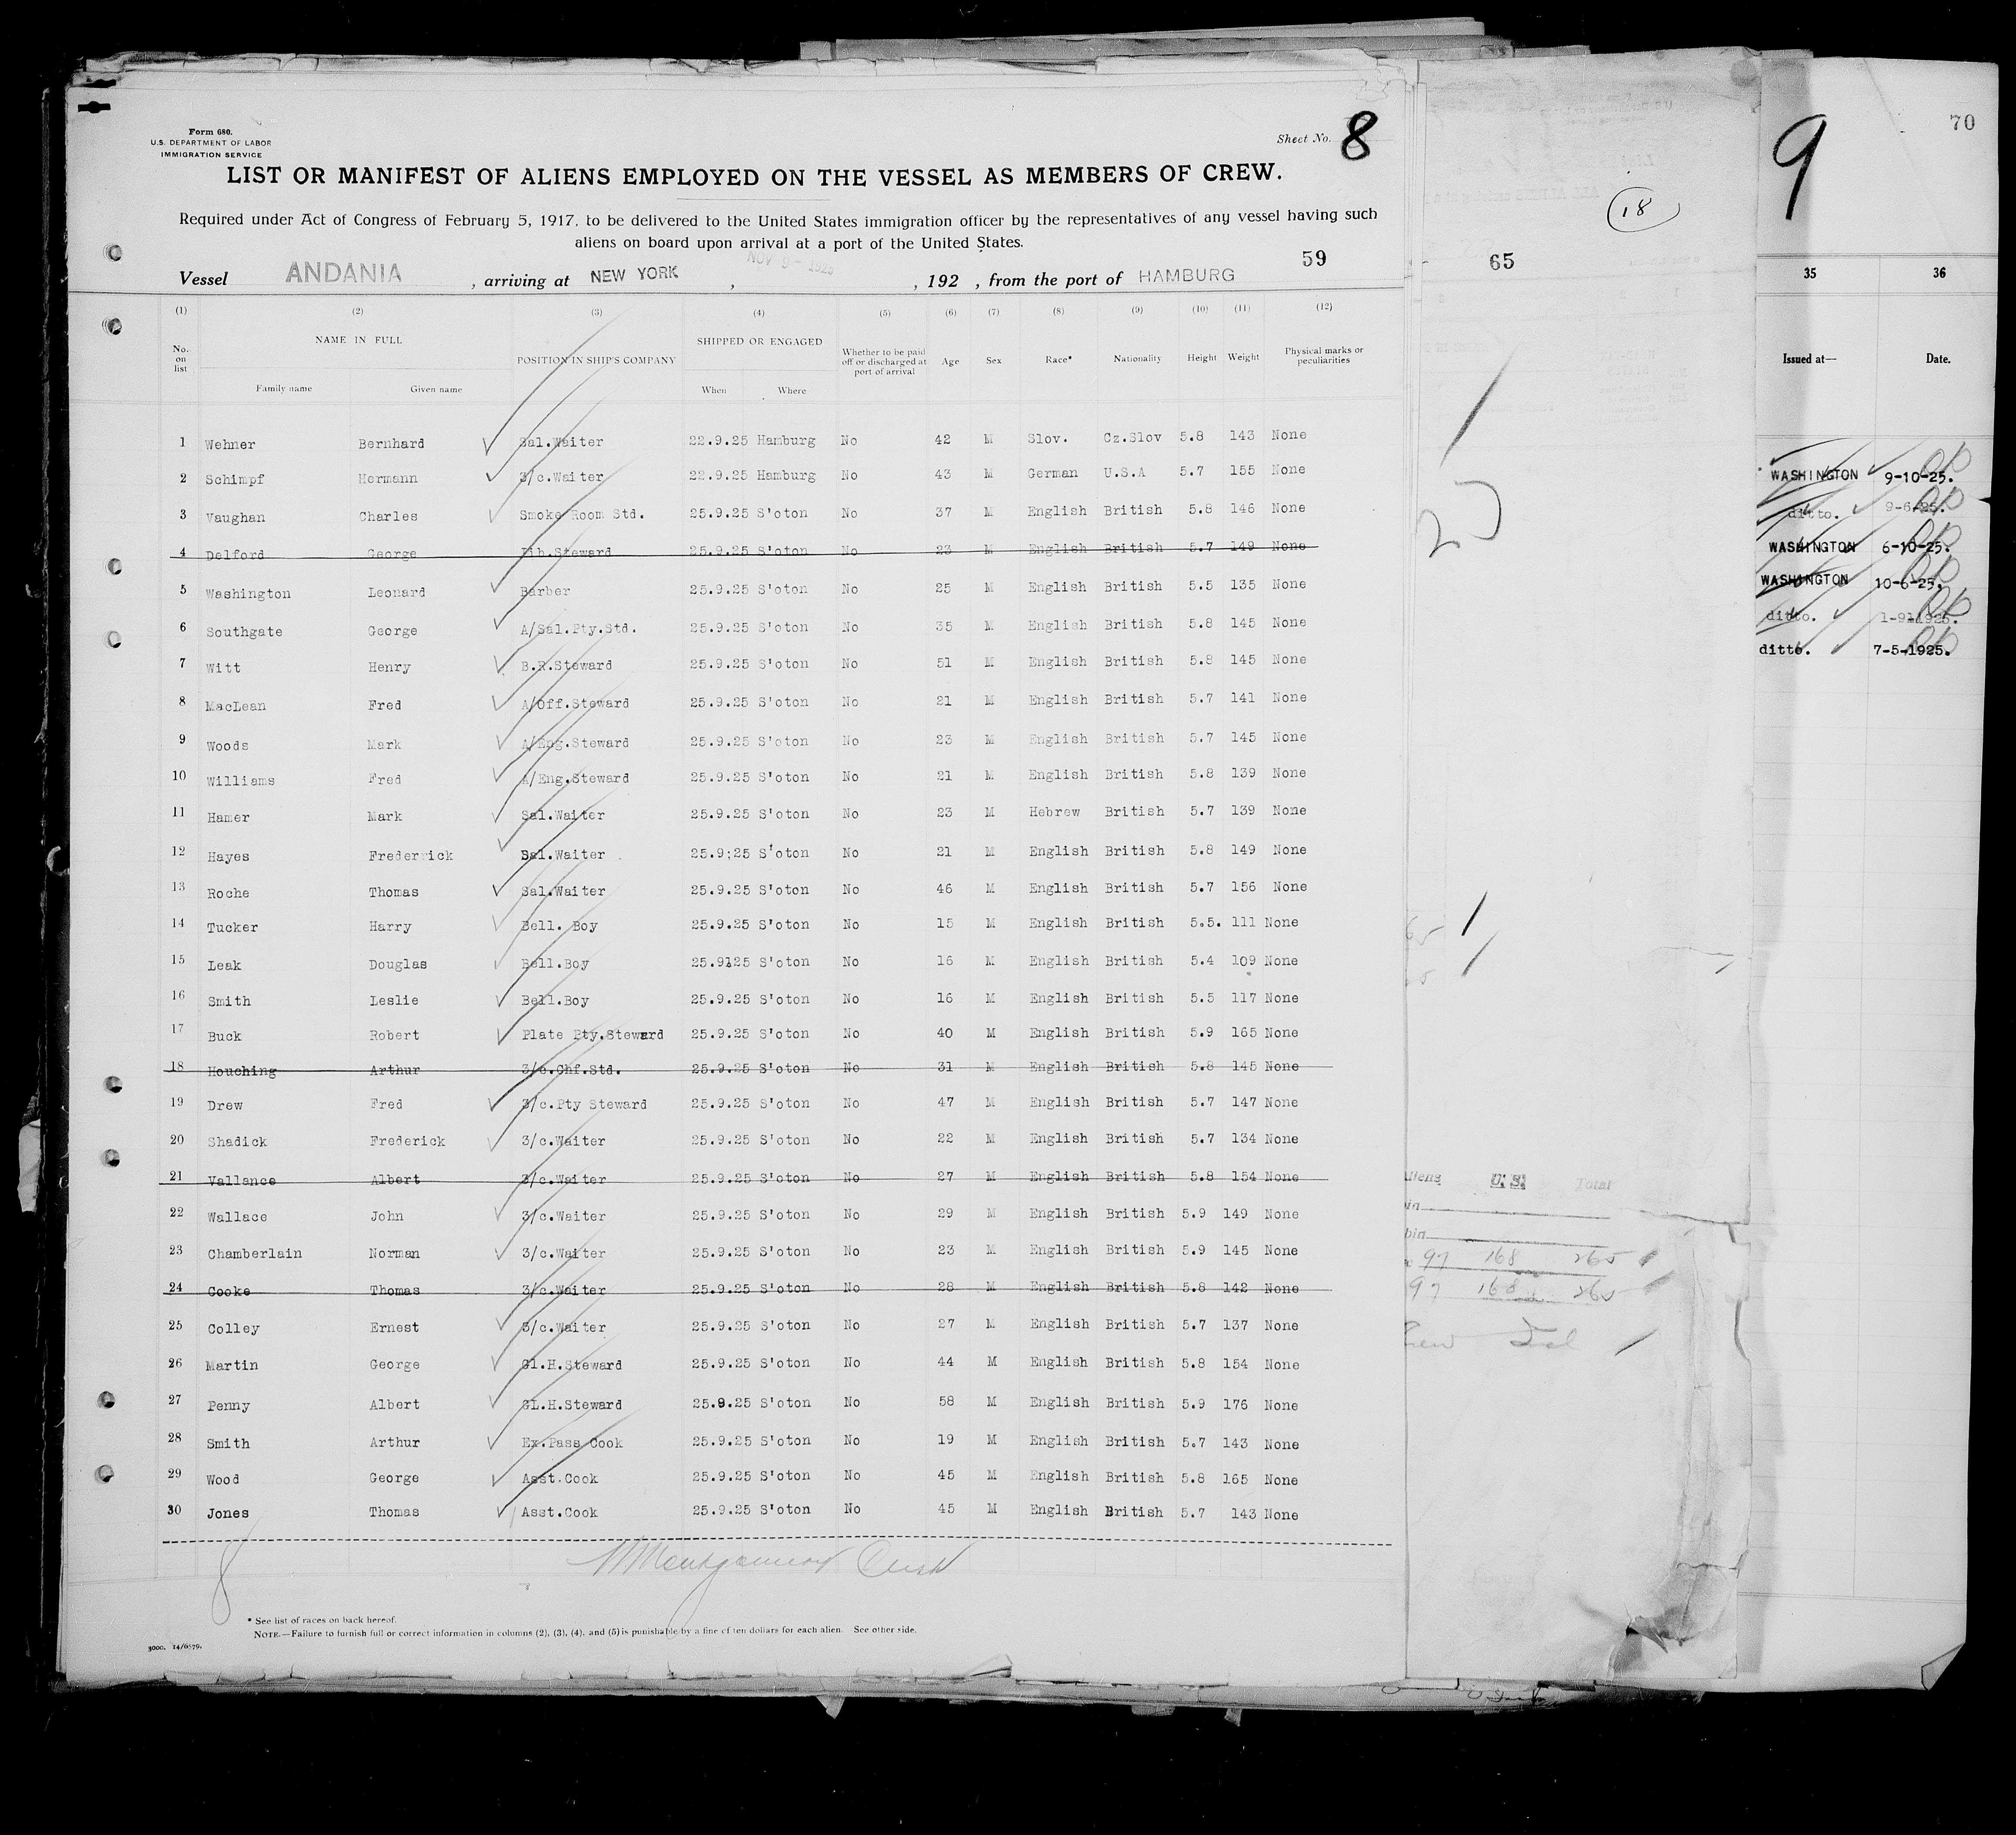 Form 680.
U.S. DEPARTMENT OF LABOR
IMMIGRATION SERVICE
Sheet No. 8
LIST OR MANIFEST OF ALIENS EMPLOYED ON THE VESSEL AS MEMBERS OF CREW.
Required under Act of Congress of February 5, 1917, to be delivered to the United States immigration officer by the representatives of any vessel having such
aliens on board upon arrival at a port of the United States.
59
Vessel ANDANIA , arriving at NEW YORK , NOV 9 - 1925 , 192 , from the port of HAMBURG
(1) (2) (3) (4) (5) (6) (7) (8) (9) (10) (11) (12)
No. on list NAME IN FULL Family name Given name POSITION IN SHIP'S COMPANY SHIPPED OR ENGAGED When Where Whether to be paid off or discharged at port of arrival Age Sex Race* Nationality Height Weight Physical marks or peculiarities
1 Wehner Bernhard Sal.Waiter 22.9.25 Hamburg No 42 M Slov. Cz.Slov 5.8 143 None
2 Schimpf Hermann 3/c.Waiter 22.9.25 Hamburg No 43 M German U.S.A 5.7 155 None
3 Vaughan Charles Smoke Room Std. 25.9.25 S'oton No 37 M English British 5.8 146 None
4 Delford George Lib.Steward 25.9.25 S'oton No 23 M English British 5.7 149 None
5 Washington Leonard Barber 25.9.25 S'oton No 25 M English British 5.5 135 None
6 Southgate George A/Sal.Pty.Std. 25.9.25 S'oton No 35 M English British 5.8 145 None
7 Witt Henry B.R.Steward 25.9.25 S'oton No 51 M English British 5.8 145 None
8 MacLean Fred A/Off.Steward 25.9.25 S'oton No 21 M English British 5.7 141 None
9 Woods Mark A/Eng.Steward 25.9.25 S'oton No 23 M English British 5.7 145 None
10 Williams Fred A/Eng.Steward 25.9.25 S'oton No 21 M English British 5.8 139 None
11 Hamer Mark Sal.Waiter 25.9.25 S'oton No 23 M Hebrew British 5.7 139 None
12 Hayes Frederrick Sal.Waiter 25.9:25 S'oton No 21 M English British 5.8 149 None
13 Roche Thomas Sal.Waiter 25.9.25 S'oton No 46 M English British 5.7 156 None
14 Tucker Harry Bell. Boy 25.9.25 S'oton No 15 M English British 5.5. 111 None
15 Leak Douglas Bell.Boy 25.9125 S'oton No 16 M English British 5.4 109 None
16 Smith Leslie Bell.Boy 25.9.25 S'oton No 16 M English British 5.5 117 None
17 Buck Robert Plate Pty.Steward 25.9.25 S'oton No 40 M English British 5.9 165 None
18 Houching Arthur 3/c.Chf.Std. 25.9.25 S'oton No 31 M English British 5.8 145 None
19 Drew Fred 3/c.Pty Steward 25.9.25 S'oton No 47 M English British 5.7 147 None
20 Shadick Frederick 3/c.Waiter 25.9.25 S'oton No 22 M English British 5.7 134 None
21 Vallance Albert 3/c.Waiter 25.9.25 S'oton No 27 M English British 5.8 154 None
22 Wallace John 3/c.Waiter 25.9.25 S'oton No 29 M English British 5.9 149 None
23 Chamberlain Norman 3/c.Waiter 25.9.25 S'oton No 23 M English British 5.9 145 None
24 Cooke Thomas 3/c.Waiter 25.9.25 S'oton No 28 M English British 5.8 142 None
25 Colley Ernest 3/c.Waiter 25.9.25 S'oton No 27 M English British 5.7 137 None
26 Martin George Gl.H.Steward 25.9.25 S'oton No 44 M English British 5.8 154 None
27 Penny Albert GL.H.Steward 25.9.25 S'oton No 58 M English British 5.9 176 None
28 Smith Arthur Ex.Pass Cook 25.9.25 S'oton No 19 M English British 5.7 143 None
29 Wood George Asst.Cook 25.9.25 S'oton No 45 M English British 5.8 165 None
30 Jones Thomas Asst.Cook 25.9.25 S'oton No 45 M English British 5.7 143 None
8
* See list of races on back hereof.
NOTE.—Failure to furnish full or correct information in columns (2), (3), (4), and (5) is punishable by a fine of ten dollars for each alien. See other side.
3000. 14/6579.
18
65
U.S. Total
97 168 265
97 168 265
9
70
35 36
Issued at— Date.
WASHINGTON 9-10-25.
ditto. 9-6-25.
WASHINGTON 6-10-25.
WASHINGTON 10-6-25.
ditto. 1-9-1925.
ditto. 7-5-1925.